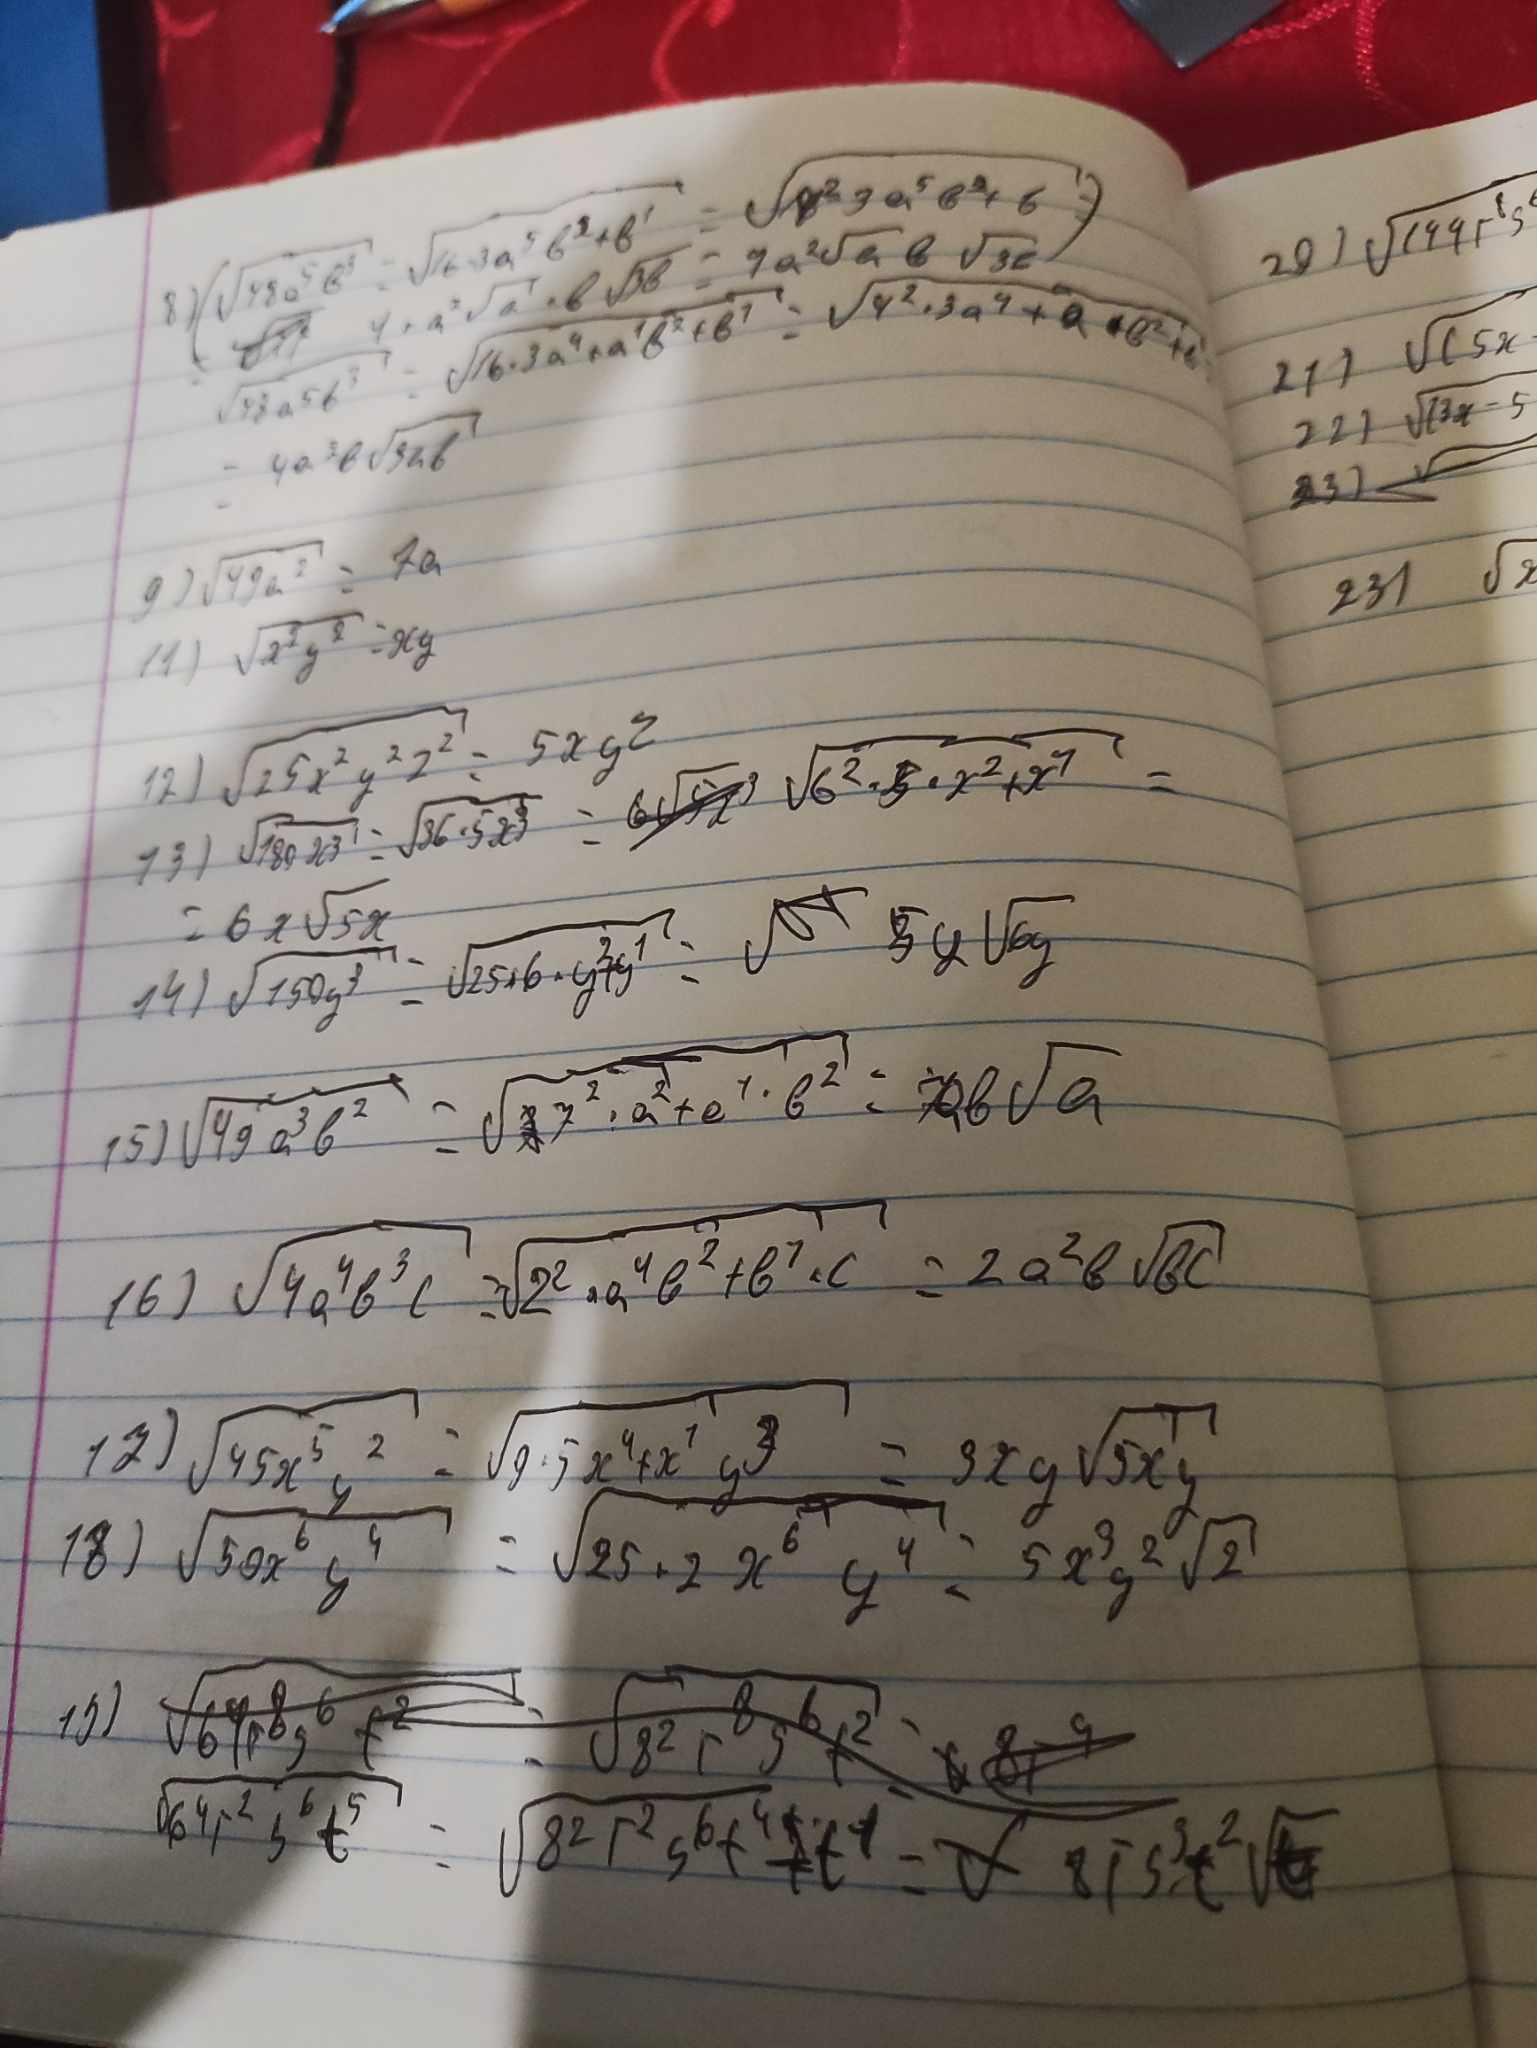 8) (√48a⁵b³ = √16·3a⁵b²+b¹ = √4²·3a⁵b²+b =
4·a²√a·b√3b = 4a²√a b √3b)
√48a5b³ = √16·3a⁴+a¹b²+b¹ = √4²·3a⁴+a·b²+b¹ =
= 4a²b√3ab
9) √49a² = 7a
11) √x²y² = xy
12) √25x²y²z² = 5xyz
13) √180x³ = √36·5x³ = √6²·5·x²+x¹ =
= 6x√5x
14) √150y³ = √25·6·y²+y¹ = 5y√6y
15) √49a³b² = √7²·a²+a¹·b² = 7ab√a
16) √4a⁴b³c = √2²·a⁴b²+b¹·c = 2a²b√bc
17) √45x⁵y² = √9·5x⁴+x¹y³ = 3xy√5xy
18) √50x⁶y⁴ = √25·2x⁶y⁴ = 5x³y²√2
19) √64r⁸s⁶t² = √8²r⁸s⁶t² =
√64r²s⁶t⁵ = √8²r²s⁶t⁴+t¹ = 8rs³t²√t
20) √144r⁸s⁶
21) √(5x-
22) √(3x-5
23)
23) √x